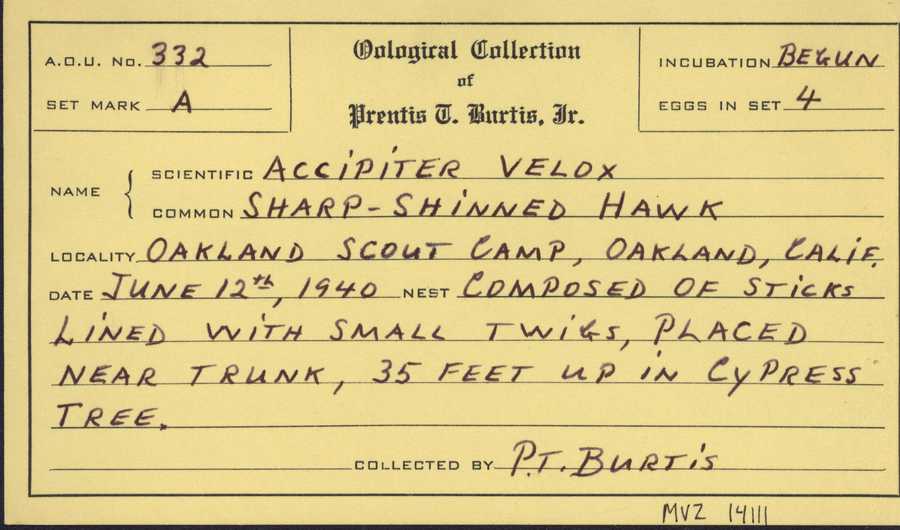 A.O.U. No. 332
SET MARK A
Oological Collection
of
Prentis T. Burtis, Jr.
INCUBATION BEGUN
EGGS IN SET 4
NAME
SCIENTIFIC ACCIPITER VELOX
COMMON SHARP-SHINNED HAWK
LOCALITY OAKLAND SCOUT CAMP, OAKLAND, CALIF.
DATE JUNE 12th, 1940 NEST COMPOSED OF STICKS
LINED WITH SMALL TWIGS, PLACED
NEAR TRUNK, 35 FEET UP IN CYPRESS
TREE.
COLLECTED BY P.T. BURTIS
MVZ 14111